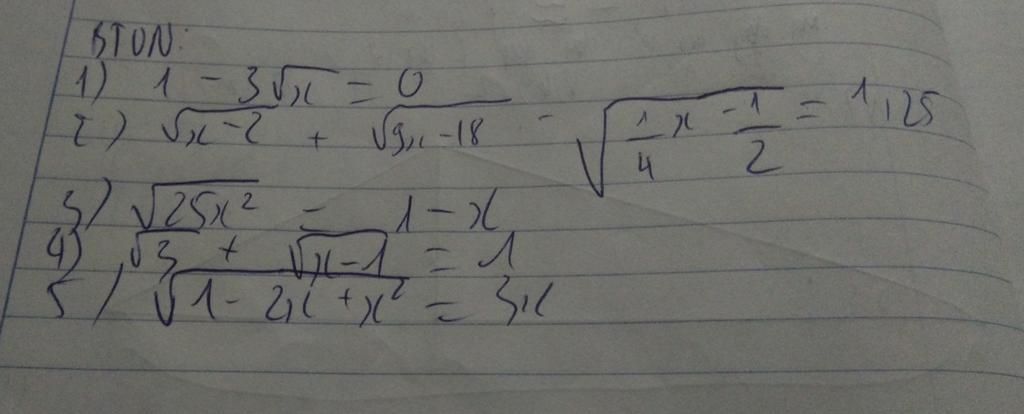 BTVN:
1) 1 - 3√x = 0
2) √(x-2) + √(9x-18) - √(1/4 x - 1/2) = 1,25
3) √(25x²) = 1 - x
4) √3 + √(x-1) = 1
5) √(1 - 2x + x²) = 3x